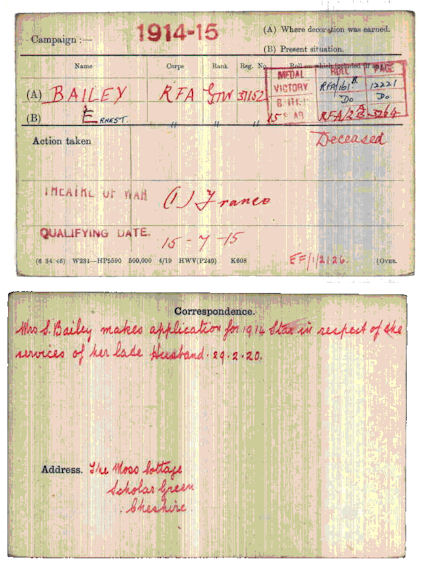 Campaign :—
1914-15
(A) Where decoration was earned.
(B) Present situation.
Name Corps Rank Reg. No. Roll on which included
(A) BAILEY RFA
(B) ERNEST. " " "
MEDAL ROLL PAGE
VICTORY RFA/161B 12221
Do Do
15 RFA/2
Action taken
Deceased
THEATRE OF WAR (1) France
QUALIFYING DATE. 15-7-15
(6 34 46) W234—HP5590 500,000 4/19 HWV(P240) K608
(OVER.
Correspondence.
Mrs S. Bailey makes application for 1914 Star in respect of the
services of her late Husband. 29.2.20.
Address. The Moss Cottage
Scholar Green
Cheshire